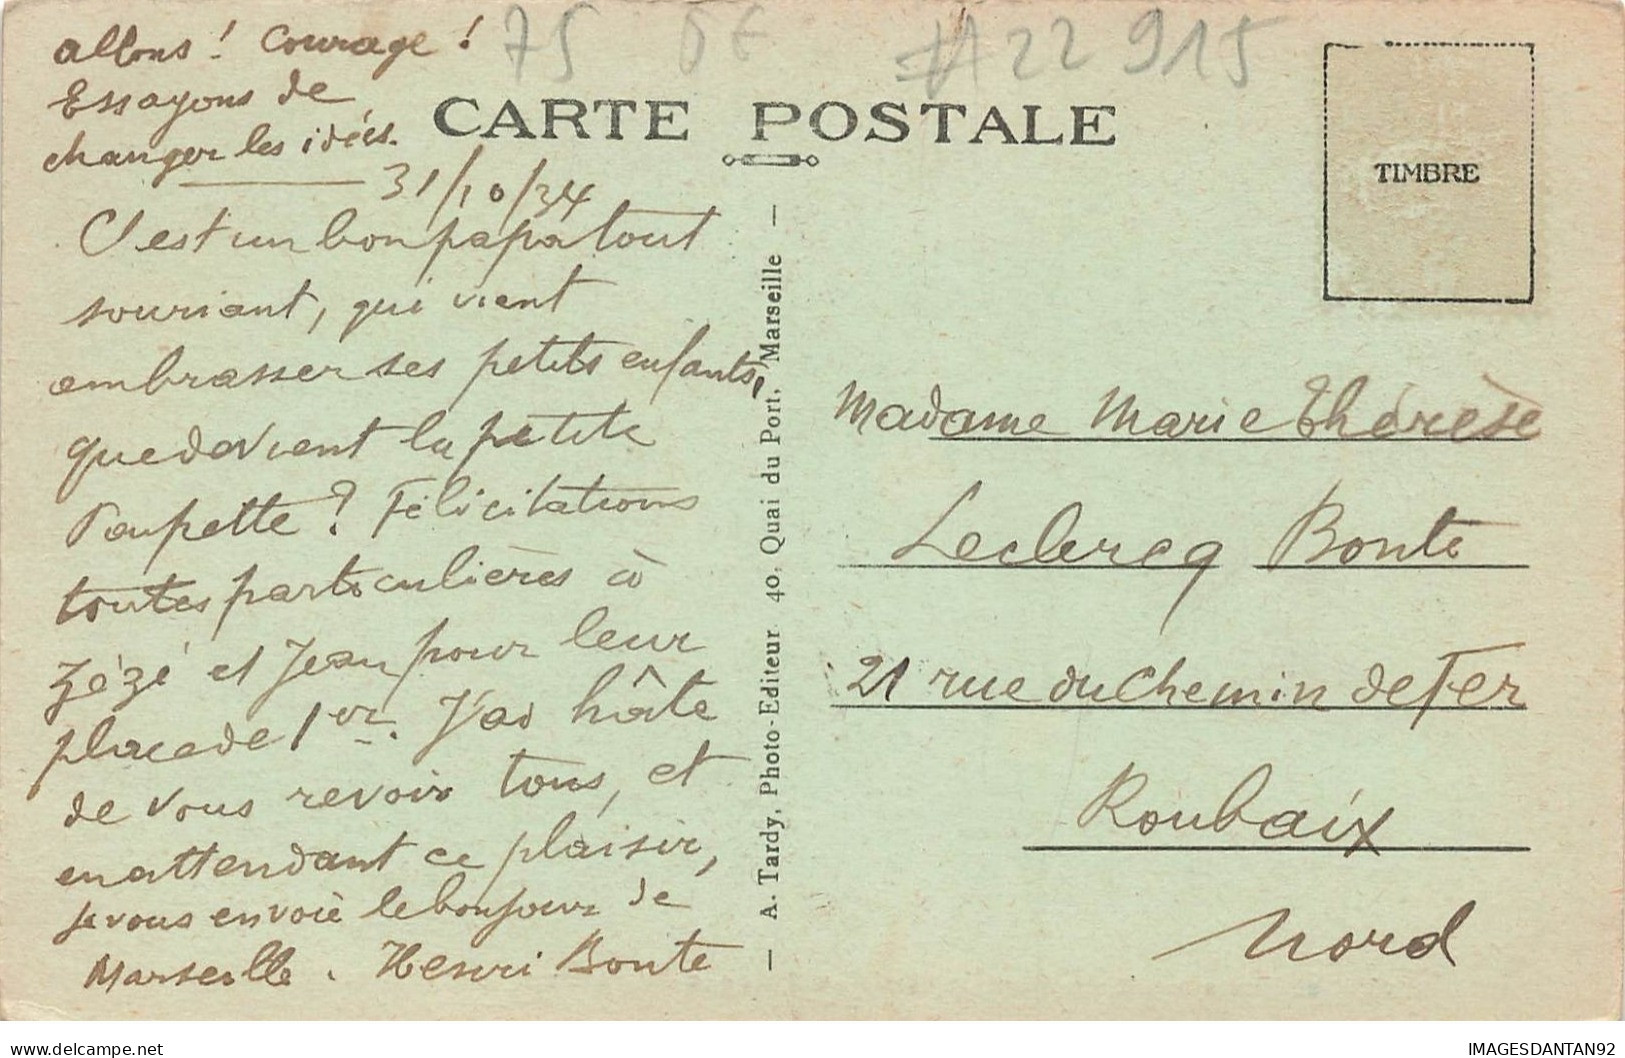 75 5€ #22915
allons ! Courage !
Essayons de
changer les idées.
31/10/34
C'est un bon papa tout
souriant, qui vient
embrasser ses petits enfants,
que devient la petite
Poupette ? Félicitations
toutes particulières à
Zézé et Jean pour leur
place de 1er. J'ai hâte
de vous revoir tous, et
en attendant ce plaisir,
je vous envoie le bonjour de
Marseille. Henri Bonte
CARTE POSTALE
— A. Tardy, Photo-Editeur 40, Quai du Port, Marseille —
TIMBRE
Madame Marie Thérèse
Leclercq Bonte
21 rue du Chemin de Fer
Roubaix
Nord
https://www.delcampe.net
IMAGESDANTAN92